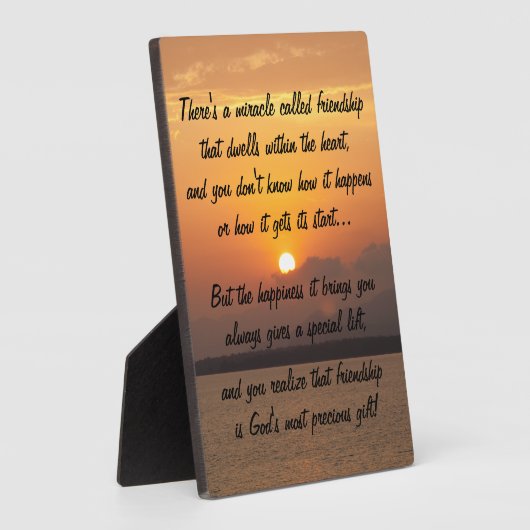 There's a miracle called friendship
that dwells within the heart,
and you don't know how it happens
or how it gets its start...
But the happiness it brings you
always gives a special lift,
and you realize that friendship
is God's most precious gift!